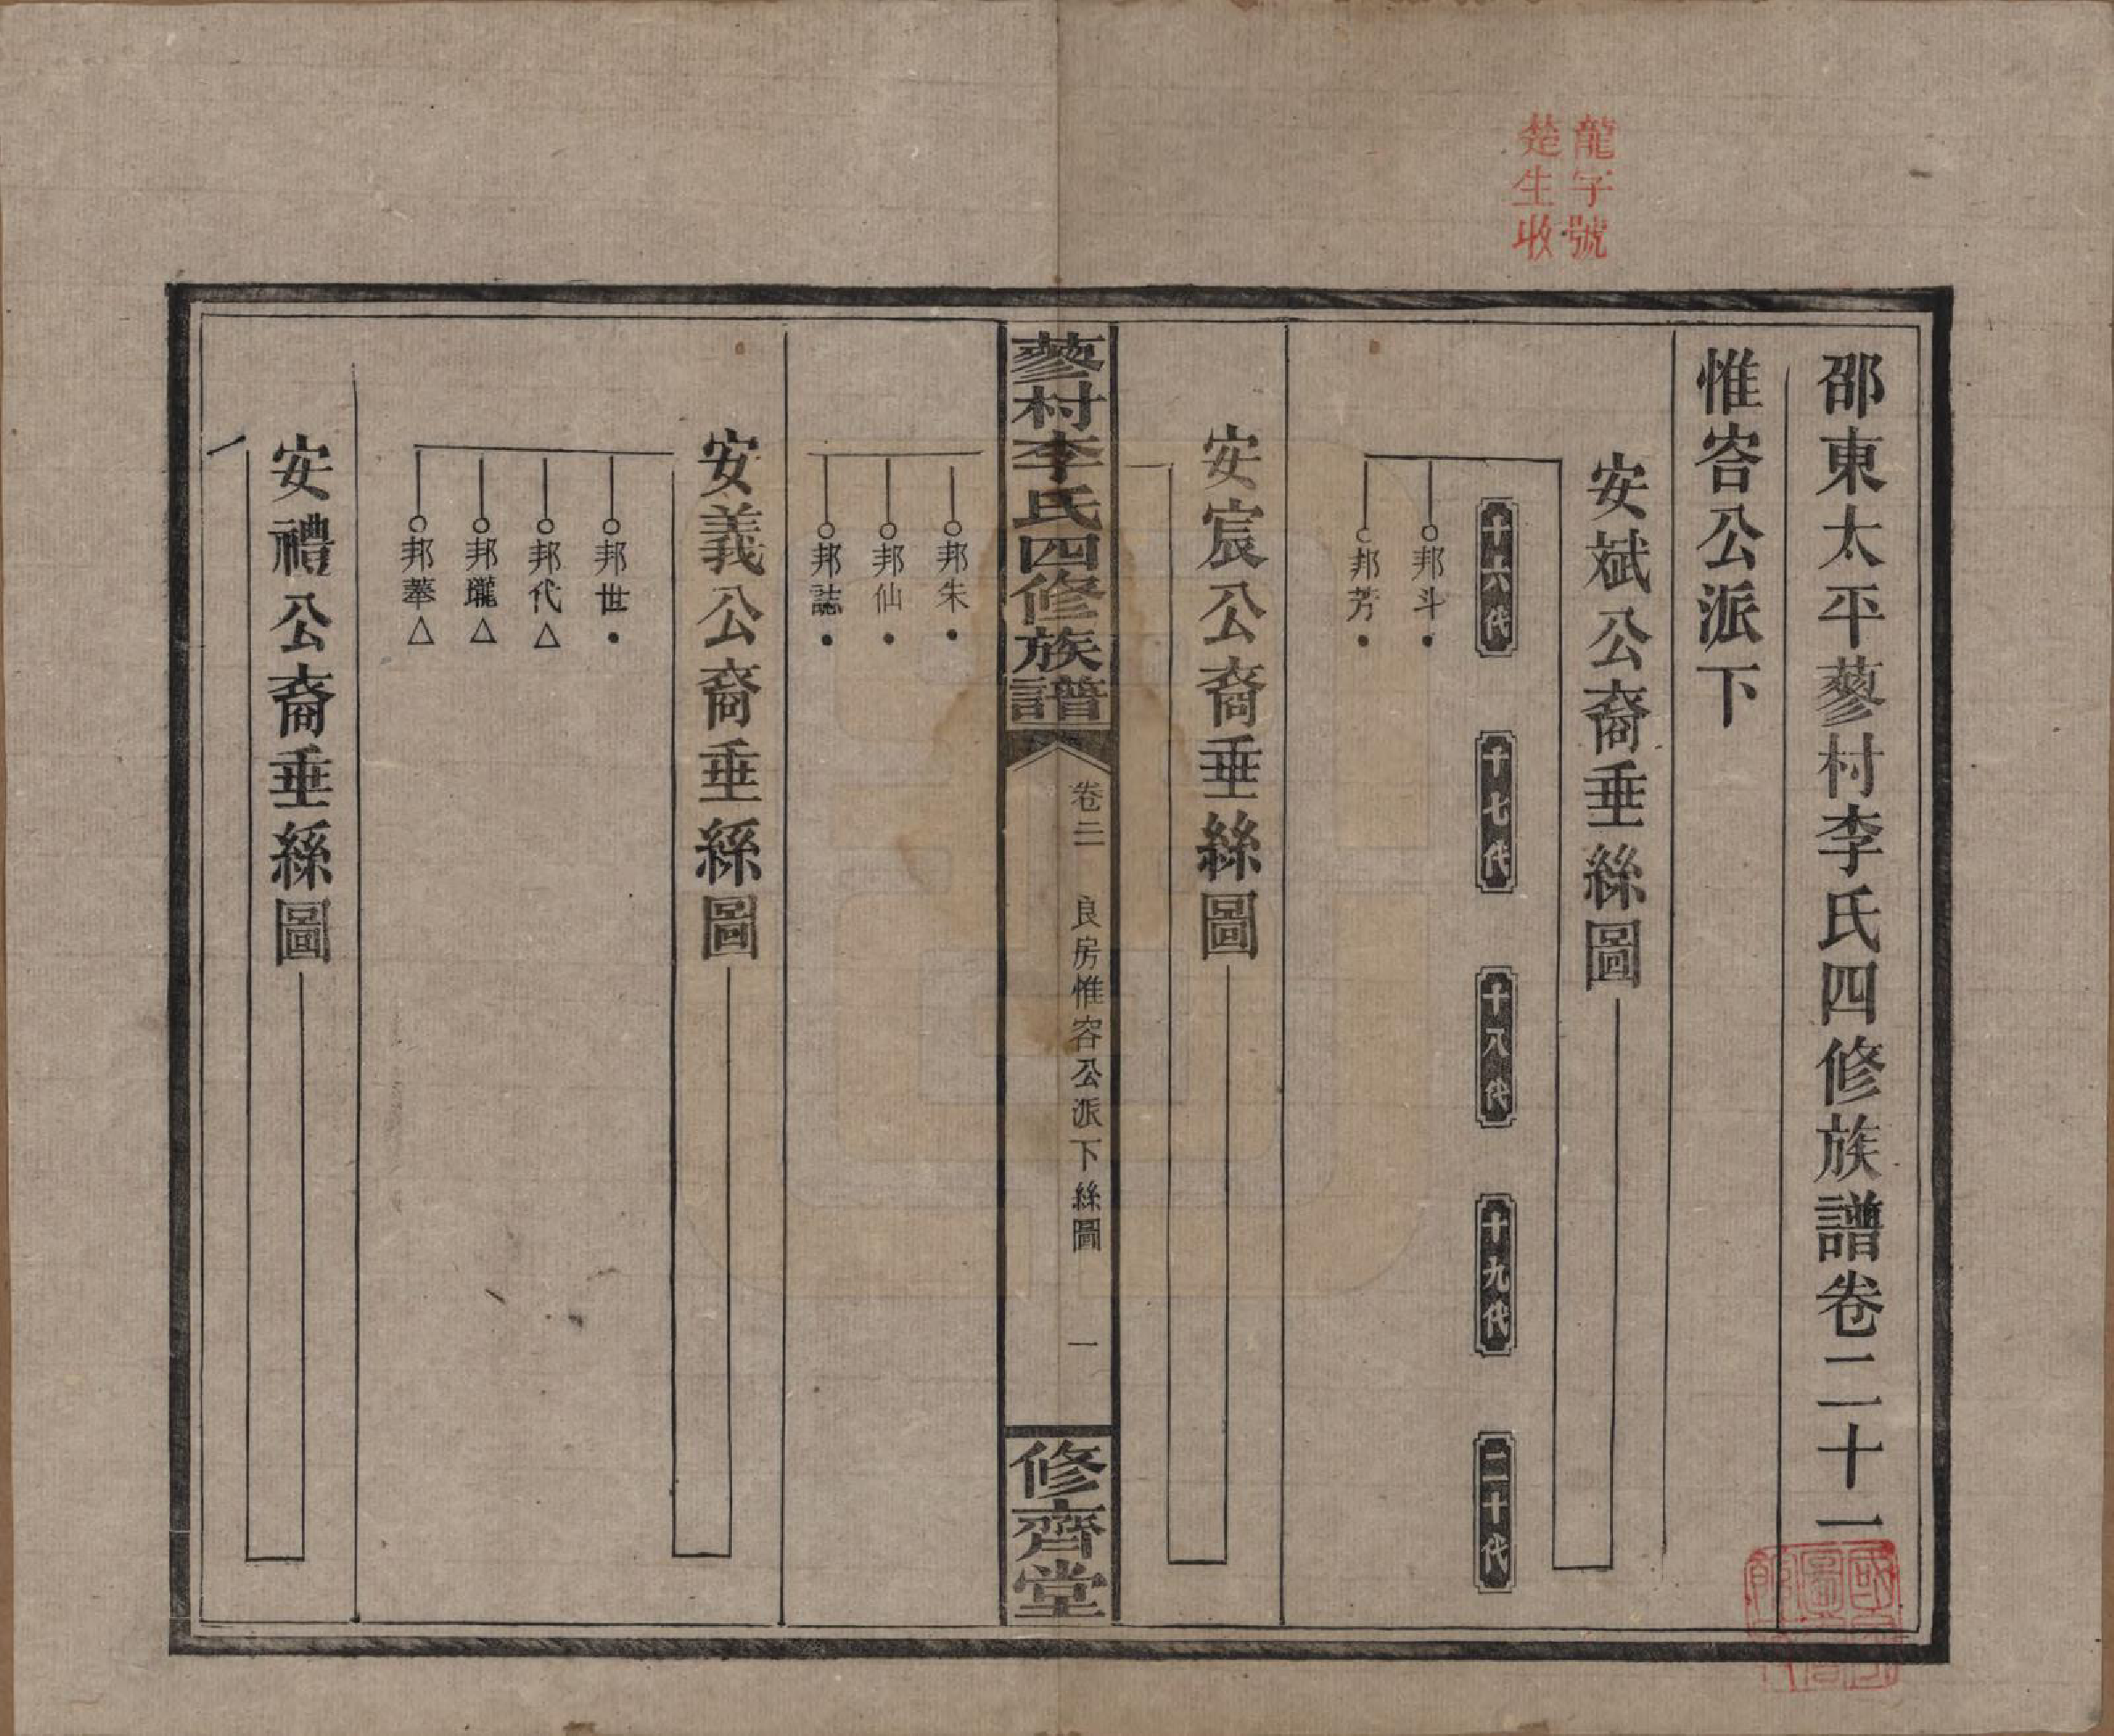 龍字號
楚生收
邵東太平蓼村李氏四修族譜卷二十一
惟容公派下
安斌公裔垂絲圖
十六代
十七代
十八代
十九代
二十代
邦斗
邦芳
安宸公裔垂絲圖
蓼村李氏四修族譜
卷二
良房惟容公派下絲圖
一
修齊堂
邦朱
邦仙
邦誌
安義公裔垂絲圖
邦世
邦代
邦瓏
安禮公裔垂絲圖